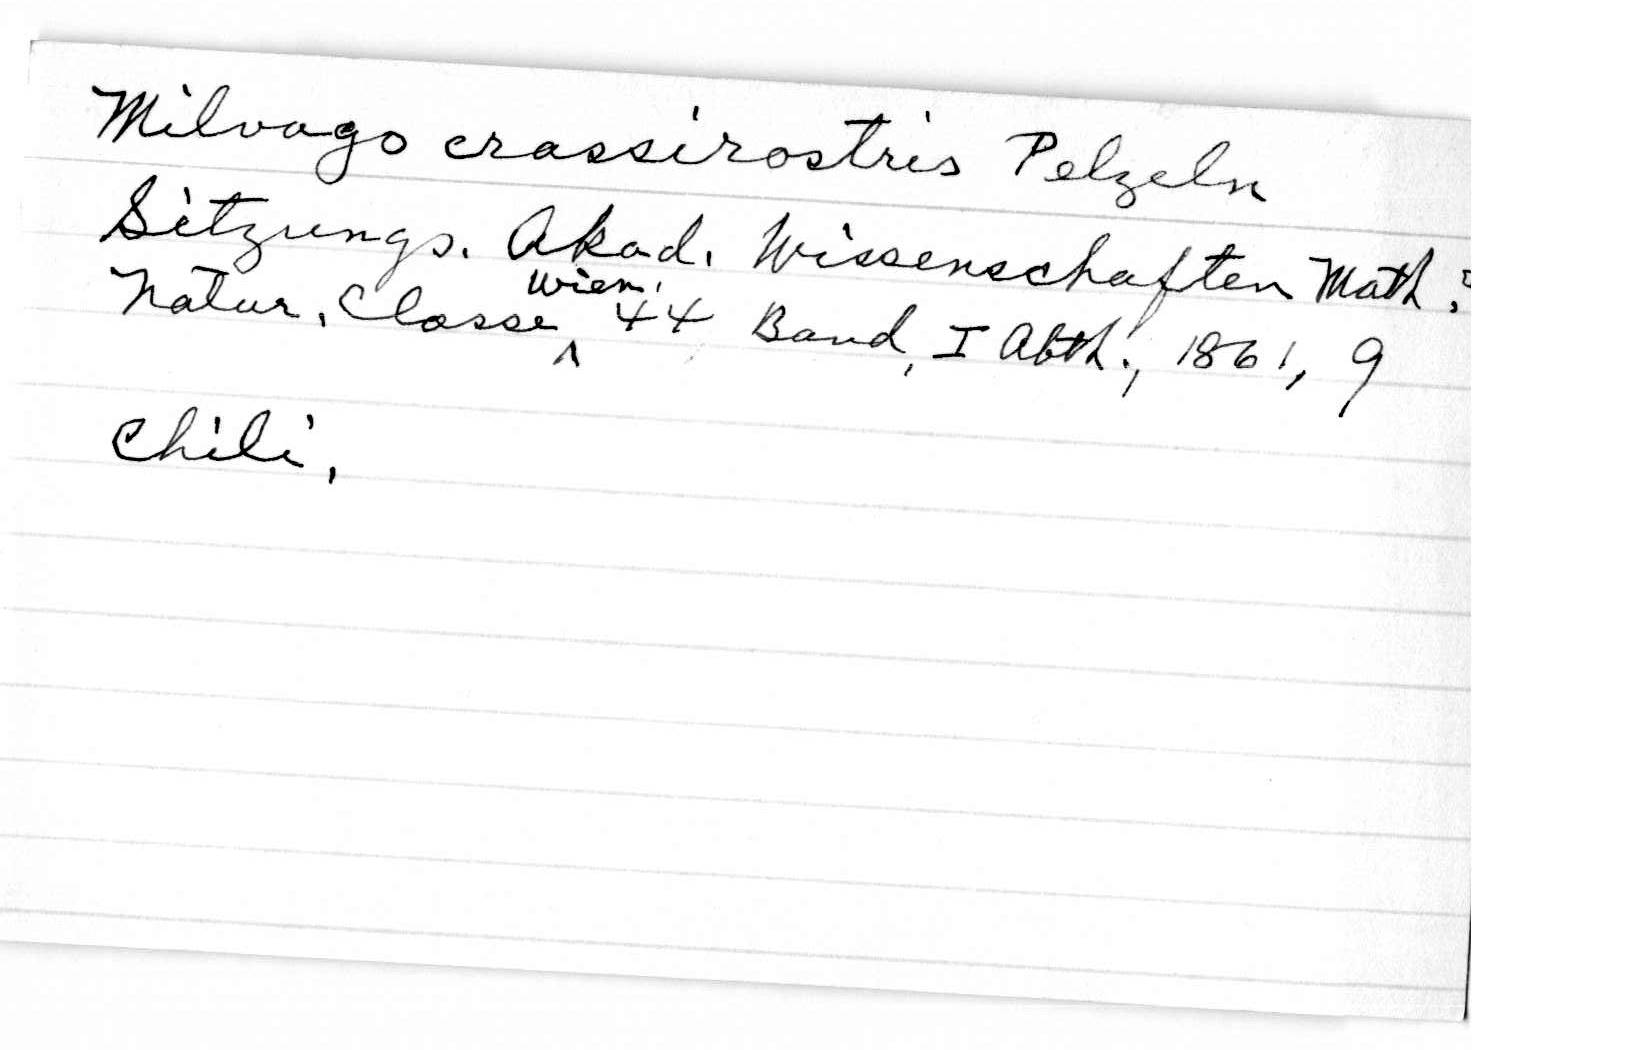 Milvago crassirostris Pelzeln
Sitzungs. Akad. Wissenschaften Math.
Wien.
Natur. Classe ^ 44 Band, I Abth., 1861, 9
Chili.